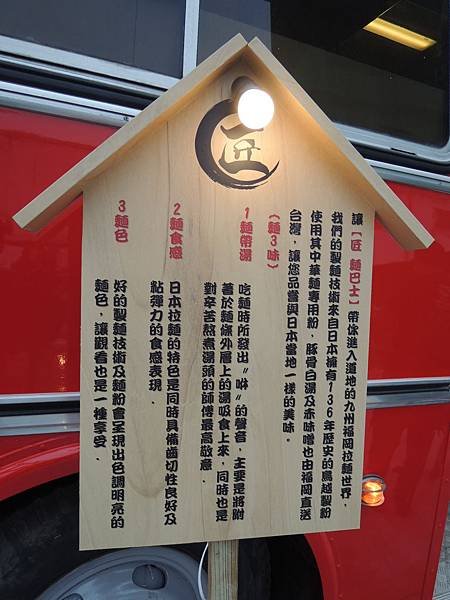 匠
讓【匠 麵巴士】帶你進入道地的九州福岡拉麵世界．
我們的製麵技術來自日本擁有136年歷史的鳥越製粉
使用其中華麵專用粉，豚骨白湯及赤味噌也由福岡直送
台灣，讓您品嘗與日本當地一樣的美味。
（麵3味）
1 麵帶湯
吃麵時所發出〝咻〞的聲音，主要是將附
著於麵條外層上的湯吸食上來，同時也是
對辛苦熬煮湯頭的師傅最高敬意．
2 麵食感
日本拉麵的特色是同時具備齒切性良好及
點彈力的食感表現．
3 麵色
好的製麵技術及麵粉會呈現出色調明亮的
麵色，讓觀看也是一種享受．